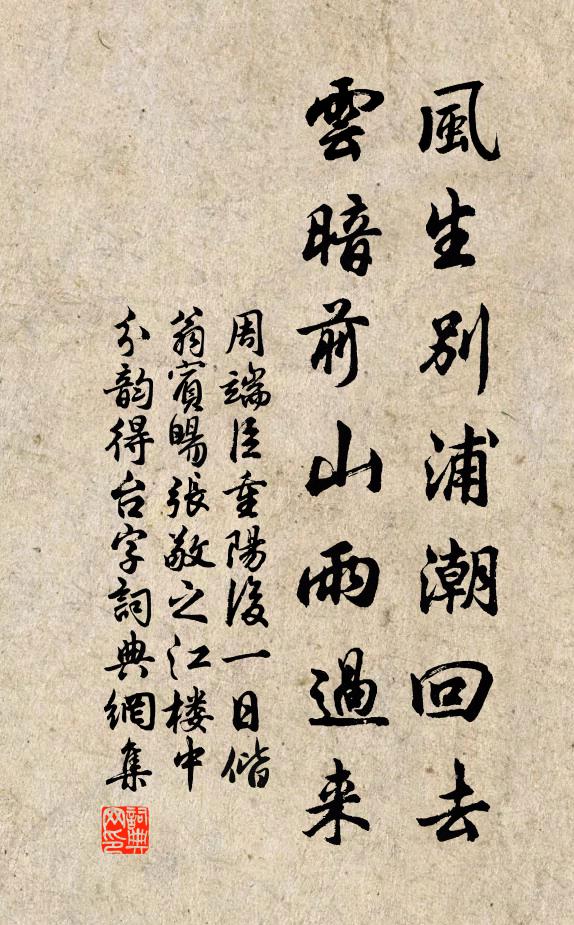 風生別浦潮回去
雲暗前山雨過来
周端臣重陽後一日偕
翁賓暘張敬之江楼中
分韵得台字詞典網集
詞典
网印